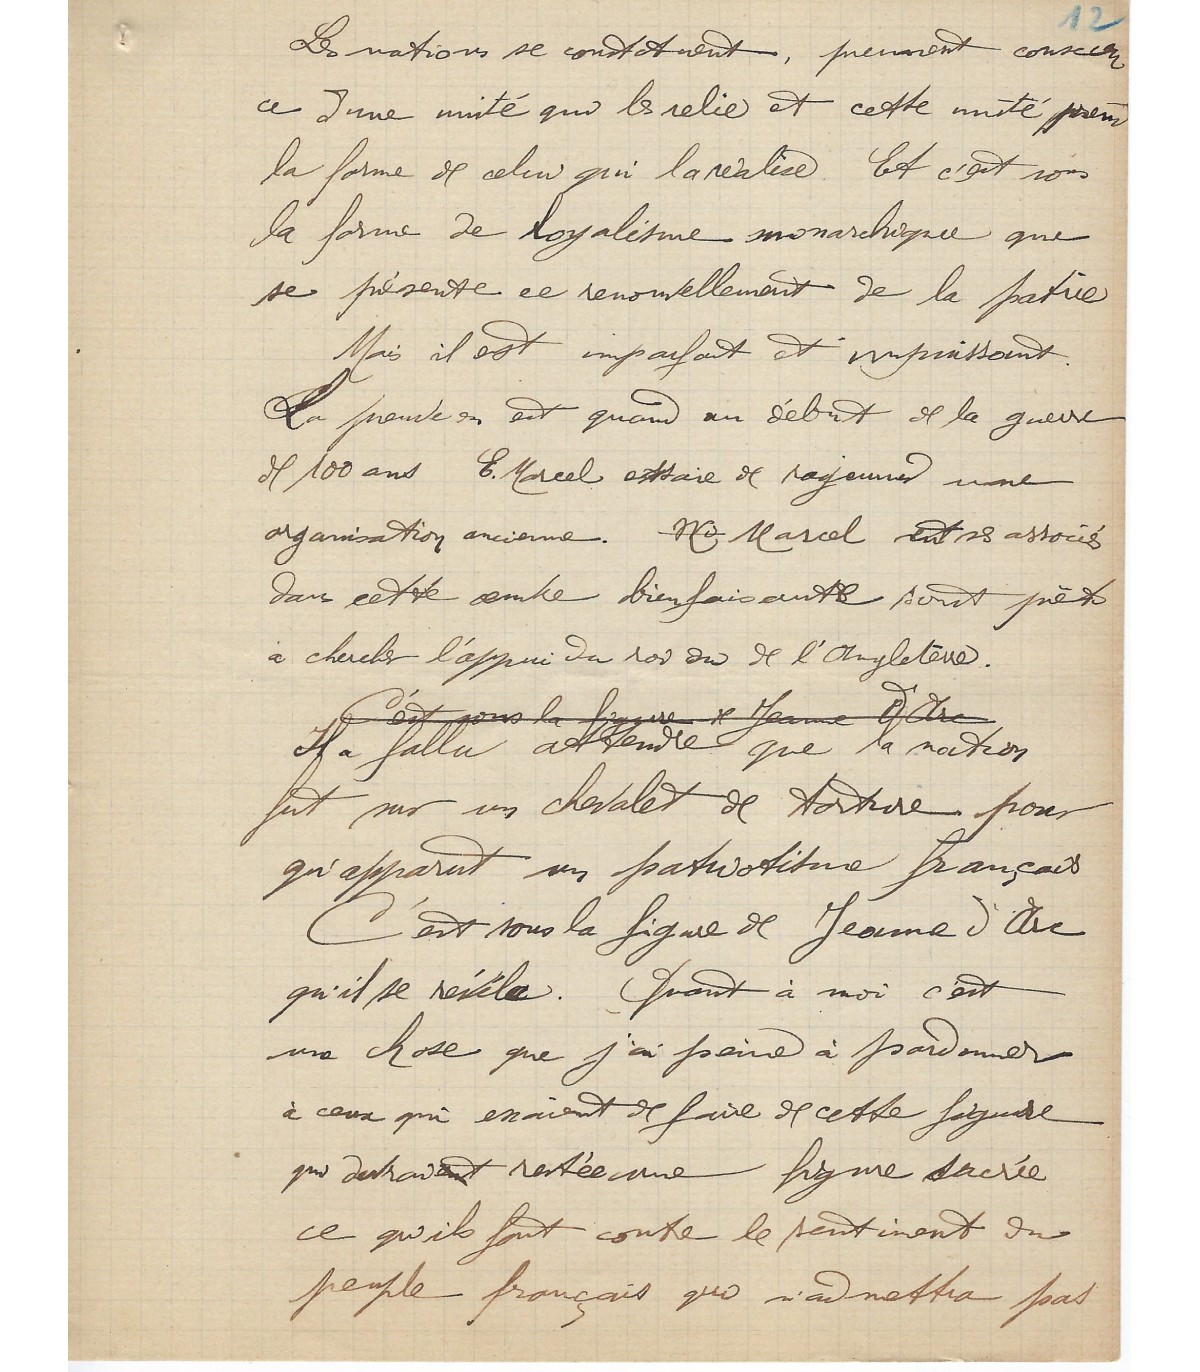 12
Les nations se constituent, prennent conscien
ce d'une unité qui les relie et cette unité prend
la forme de celui qui la réalise. Et c'est sous
la forme de loyalisme monarchique que
se présente ce renouvellement de la patrie
Mais il est imparfait et impuissant.
La preuve en est quand au début de la guerre
de 100 ans E. Marcel essaie de rajeunir une
organisation ancienne. Marcel et ses associés
dans cette œuvre bienfaisante sont prêts
à chercher l'appui du roi de l'Angleterre.
C'est sous la figure de Jeanne d'Arc
Il a fallu attendre que la nation
fut sur un chevalet de torture pour
qu'apparut un patriotisme français
C'est sous la figure de Jeanne d'Arc
qu'il se révéla. Quant à moi c'est
une chose que j'ai peine à pardonner
à ceux qui essaient de faire de cette figure
qui devrait rester une figure sacrée
ce qu'ils font contre le sentiment du
peuple français qui n'admettra pas